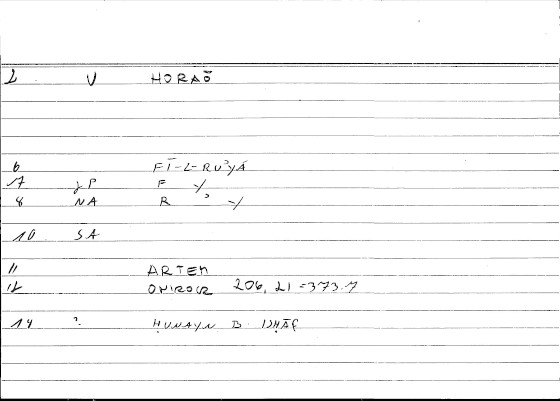 1 V HORAŌ
6 FĪ-L-RUʾYĀ
7 γP F Y
8 NA R ʾ Y
10 SA
11 ARTEM
12 ONIROCR 206, 21 = 373.7
14 ? ḤUNAYN B. ISḤĀQ